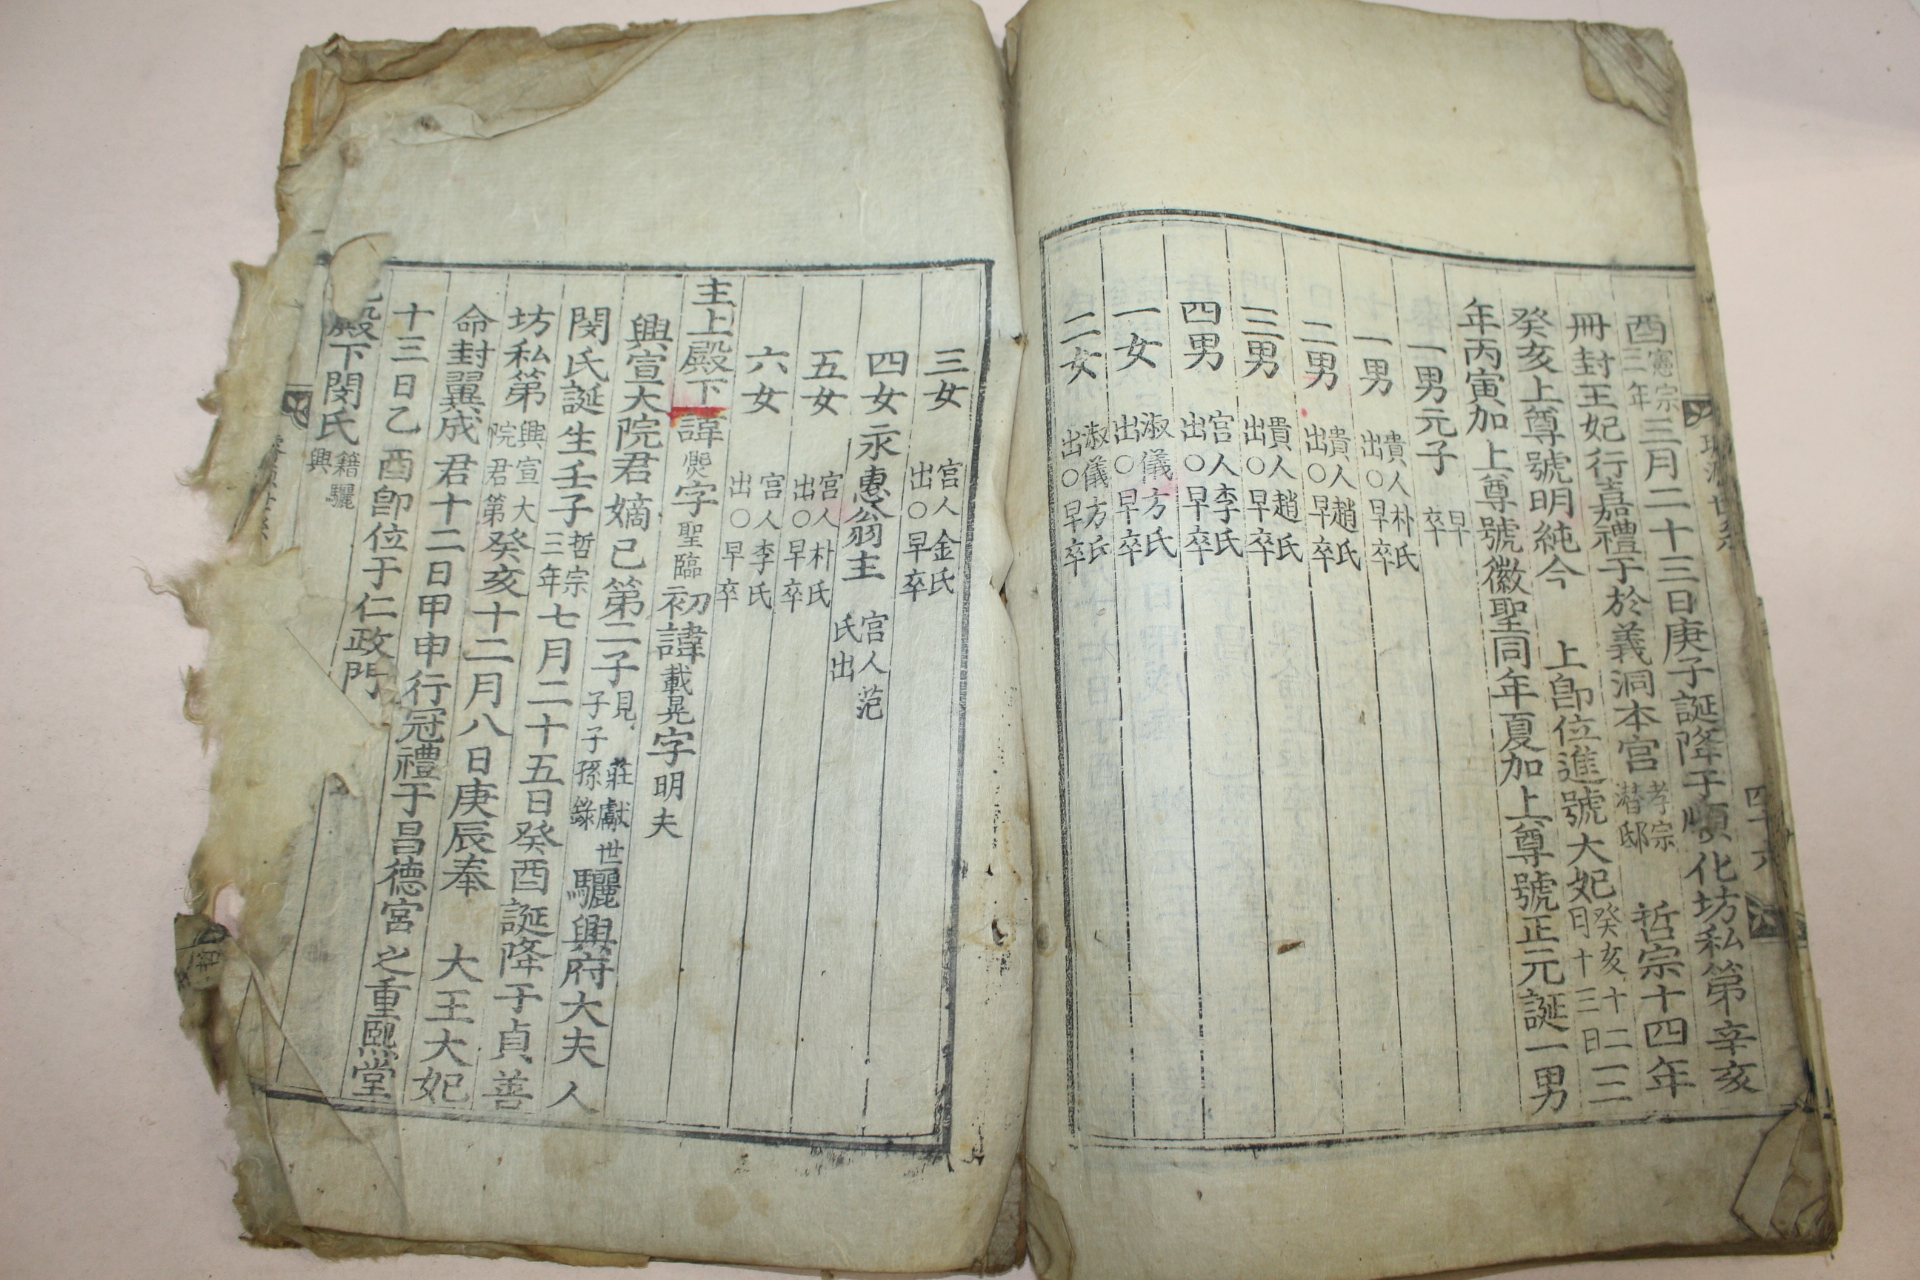 酉憲宗三年三月二十三日庚子誕降于順化坊私第辛亥
冊封王妃行嘉禮于於義洞本宮孝宗潛邸 哲宗十四年
癸亥上尊號明純今 上卽位進號大妃癸亥十二月十三日三
年丙寅加上尊號徽聖同年夏加上尊號正元誕一男
一男元子早卒
一男貴人朴氏出○早卒
二男貴人趙氏出○早卒
三男貴人趙氏出○早卒
四男宮人李氏出○早卒
一女淑儀方氏出○早卒
二女淑儀方氏出○早卒
三女宮人金氏出○早卒
四女永惠翁主宮人范氏出
五女宮人朴氏出○早卒
六女宮人李氏出○早卒
主上殿下諱㷩字聖臨初諱載晃字明夫
興宣大院君嫡己第二子見莊獻世子子孫錄驪興府大夫人
閔氏誕生壬子哲宗三年七月二十五日癸酉誕降于貞善
坊私第興宣大院君第癸亥十二月八日庚辰奉 大王大妃
命封翼成君十二日甲申行冠禮于昌德宮之重熙堂
十三日乙酉卽位于仁政門
殿下閔氏籍驪興
四十六